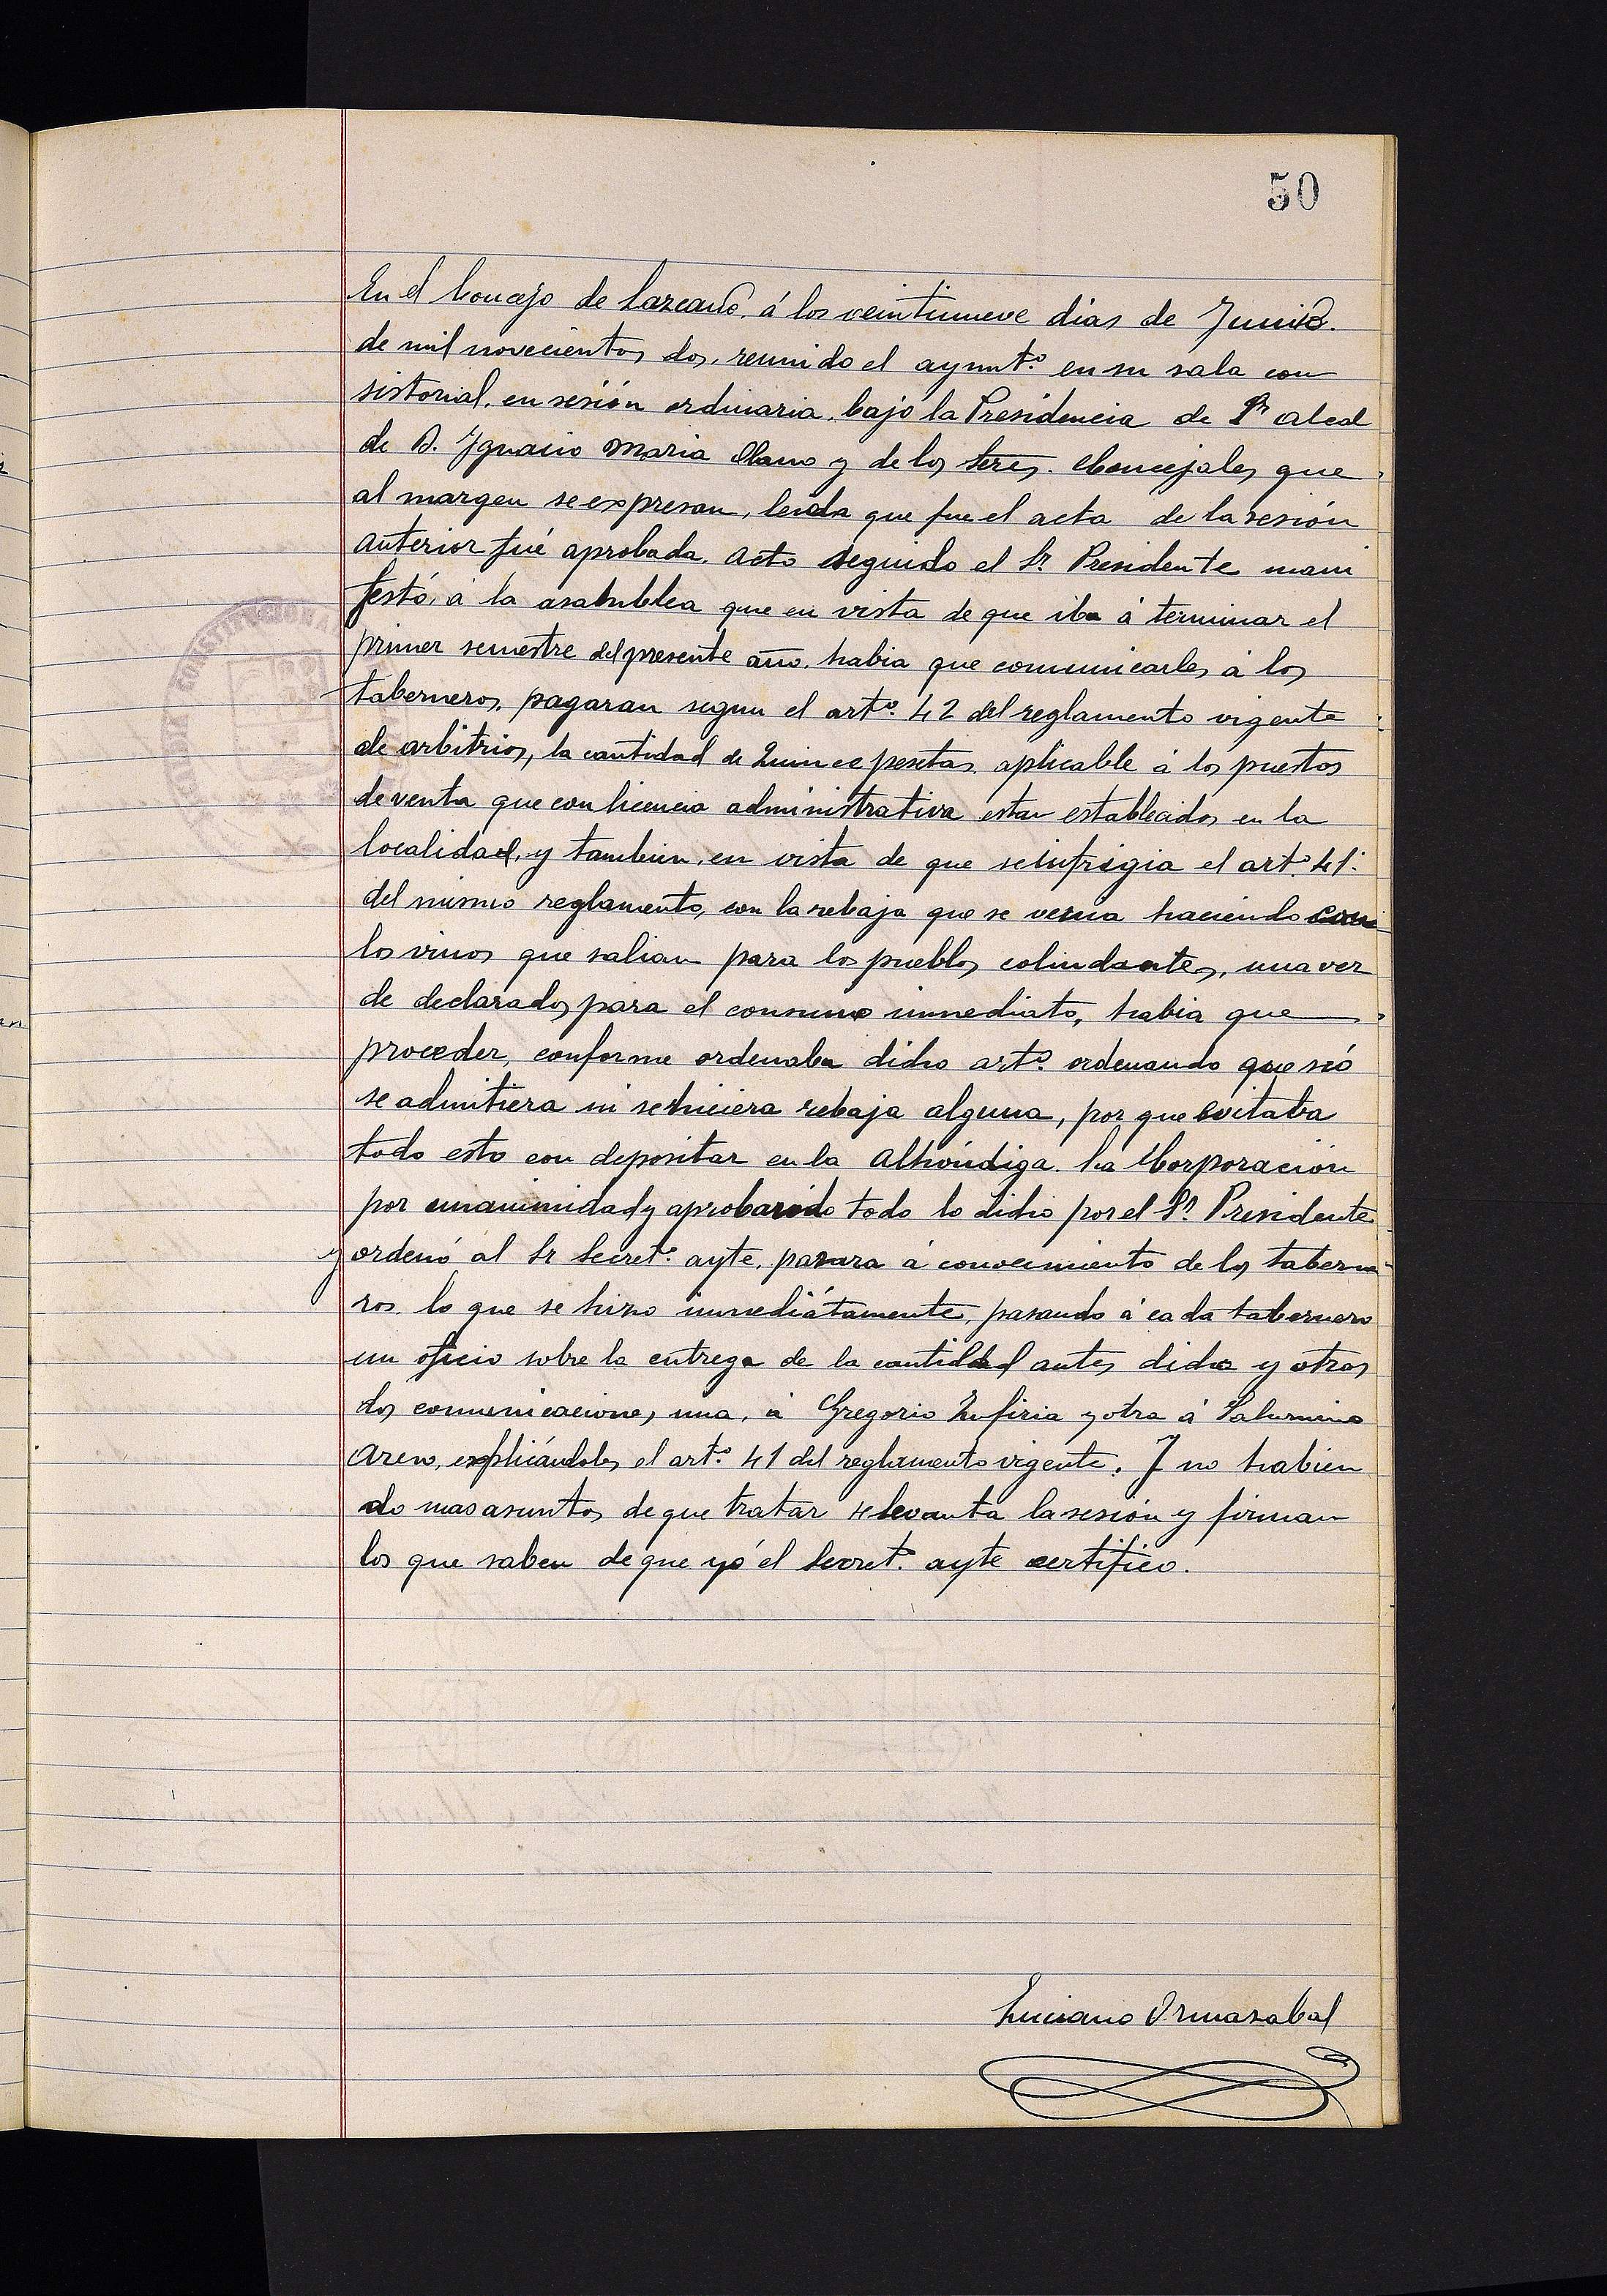 50
En el Concejo de Lazcano, á los veintinueve dias de Junio.
de mil novecientos dos, reunido el ayunt.º en su sala con
sistorial, en sesión ordinaria, bajo la Presidencia de Sr alcal
de D. Ygnacio Maria Olano y de los Sres. Concejales que
al margen se expresan, leida que fue el acta de la sesión
anterior fué aprobada. Acto seguido el Sr. Presidente mani
festó, á la asabublea que en vista de que iba á terminar el
primer semestre del presente año. habia que comunicarles á los
taberneros, pagaran segun el artº. 42 del reglamento vigente
de arbitrios, la cantidad de Quince pesetas, aplicable á los puestos
de venta que con licencia administrativa estan establecidos en la
localidad, y tambien, en vista de que se infrigia el artº. 41.
del mismo reglamento, con la rebaja que se venia haciendo con
los vinos que salian para los pueblos colindantes, una vez
de declarados para el consumo inmediato, habia que
proceder, conforme ordenaba dicho artº. ordenando que no
se admitiera ni se hiciera rebaja alguna, por que evitaba
todo esto con depositar en la Alhóndiga. La Corporación
por unanimidad y aprobando todo lo dicho por el Sr. Presidente
y ordenó al Sr Secretº. ayte, pasara á conocimiento de los taberne
ros. lo que se hizo inmediátamente, pasando á cada tabernero
un oficio sobre la entrega de la cantidad antes dicha y otras
dos comunicaciones, una, á Gregorio Zufiria y otra á Saturnino
Areno, explicándoles el artº. 41 del reglamento vigente. Y no habien
do mas asuntos de que tratar se levanta la sesión y firman
los que saben de que yó el Secret.º ayte certifico.
Luciano Ormazabal